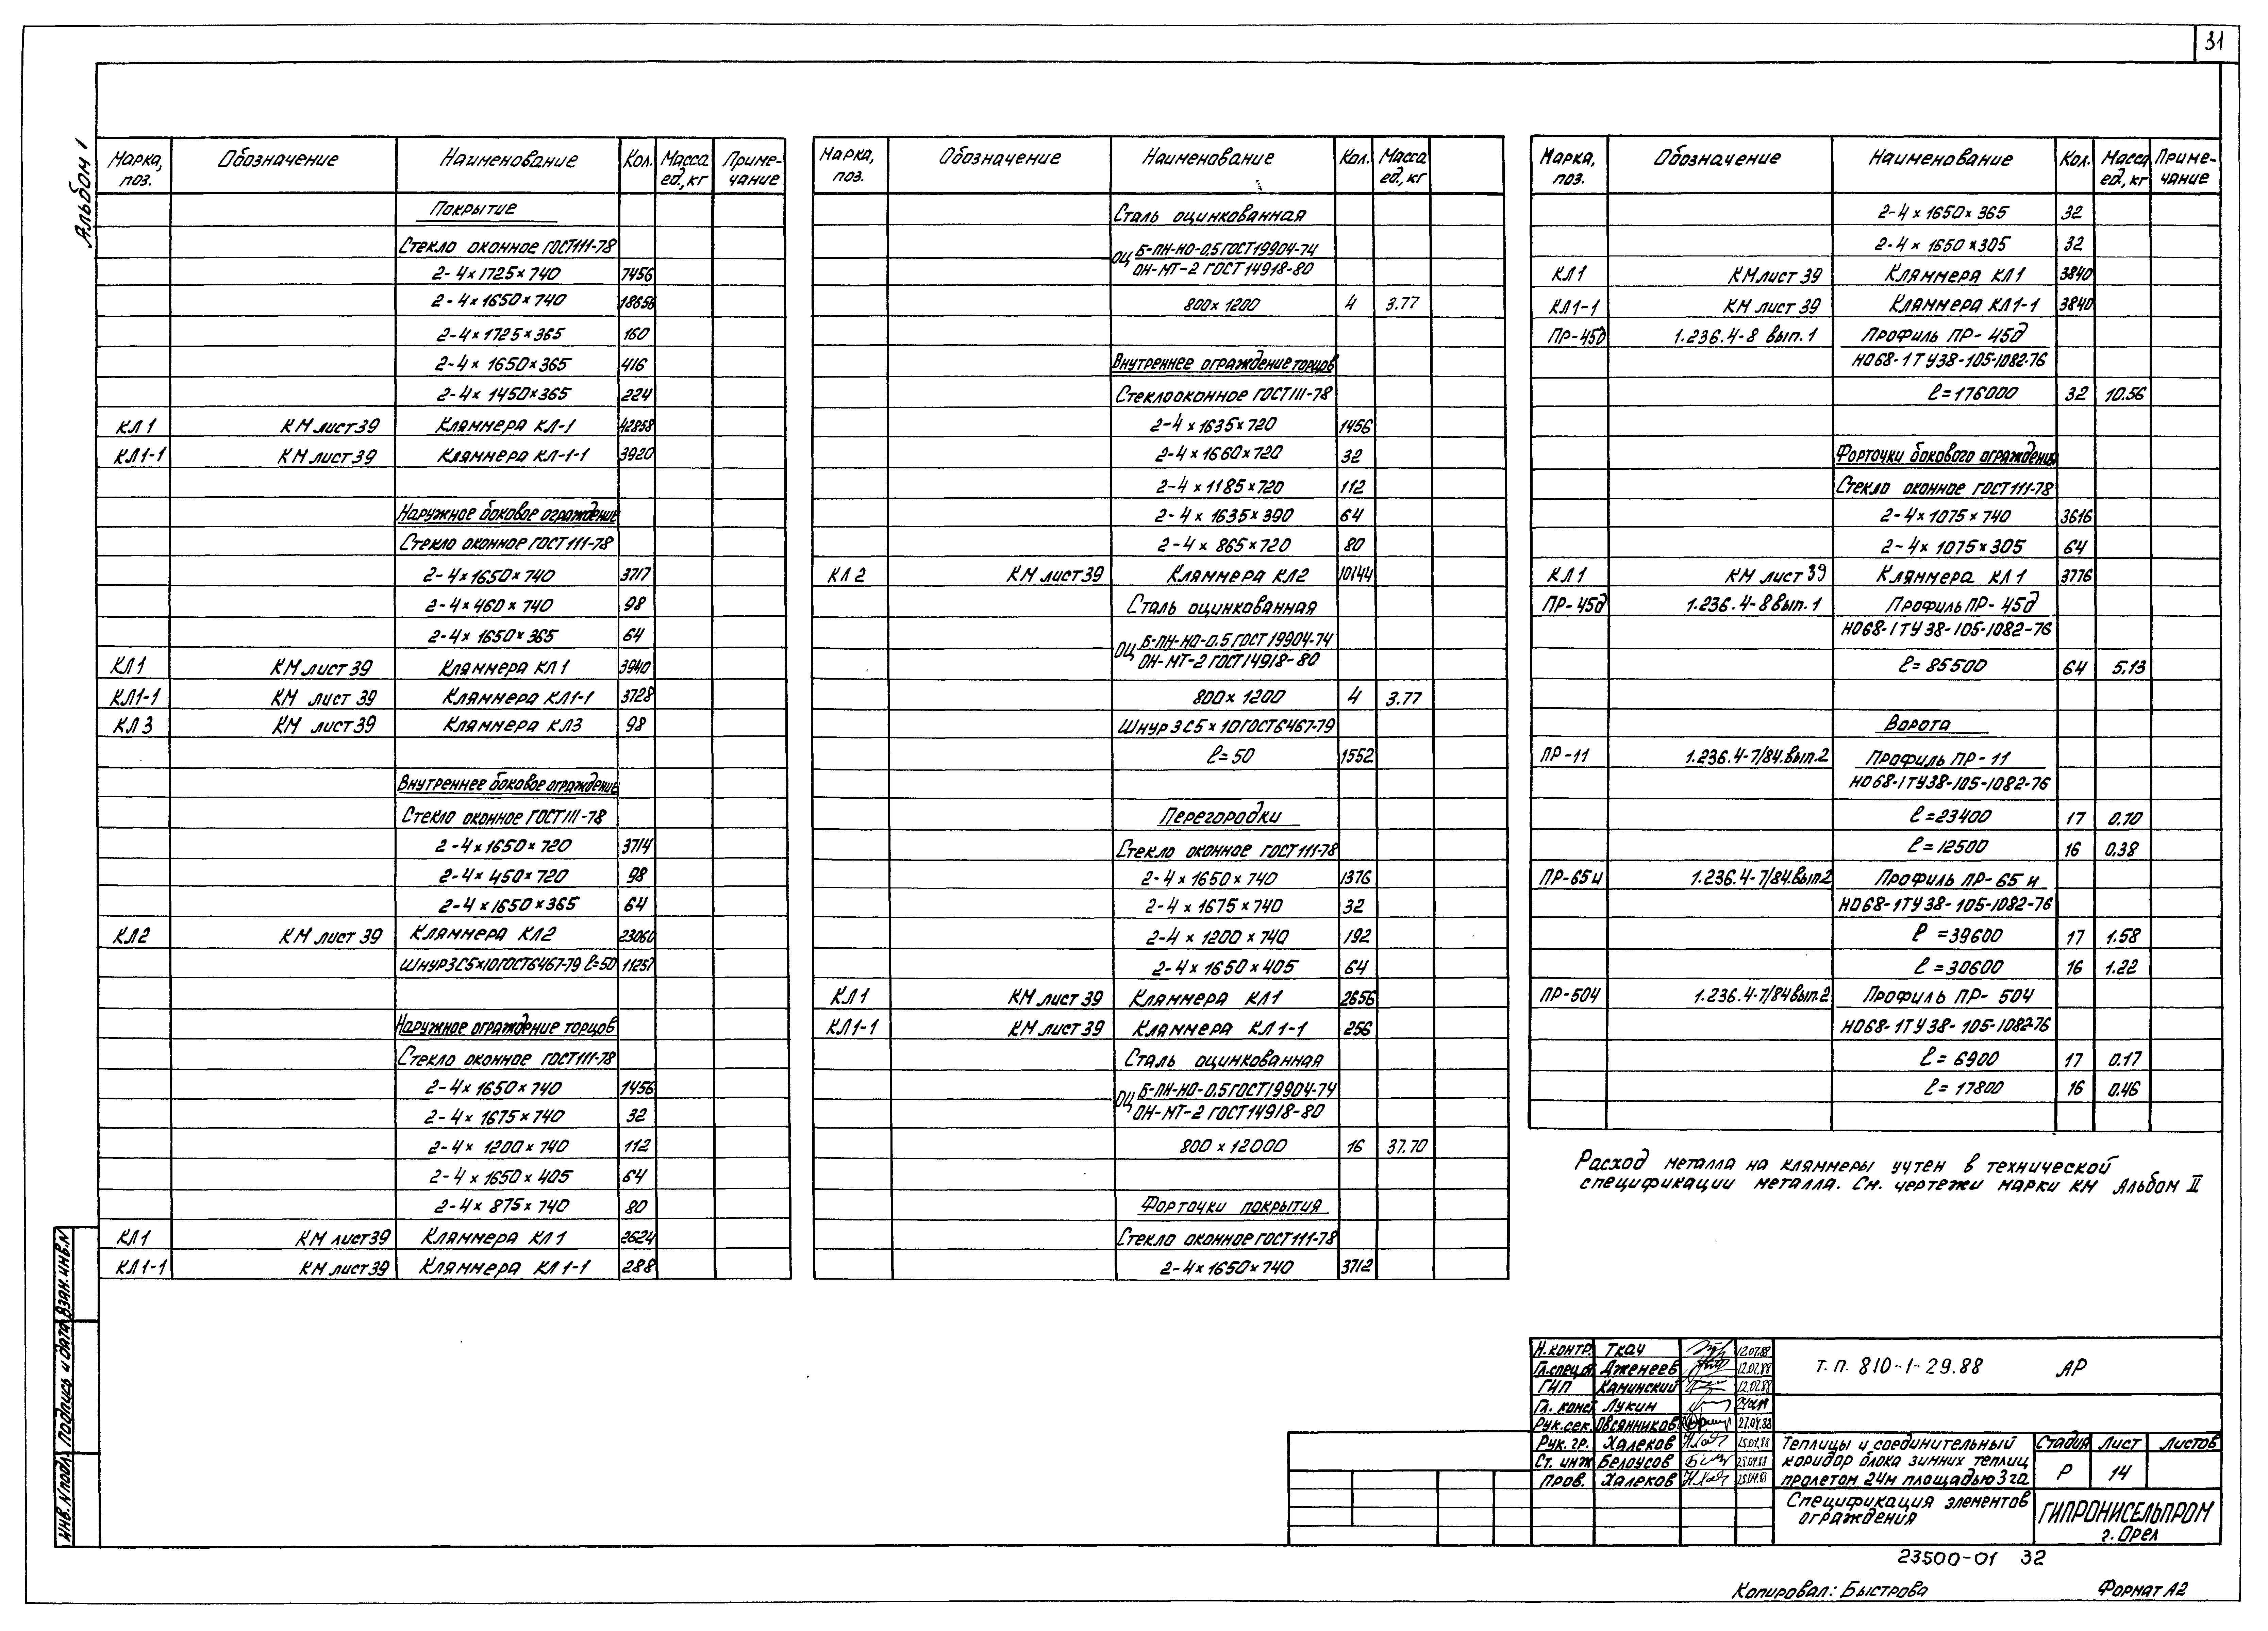 31
Альбом 1
Марка, поз. Обозначение Наименование Кол. Масса ед., кг Примечание
Покрытие
Стекло оконное ГОСТ 111-78
2-4×1725×740 7456
2-4×1650×740 18656
2-4×1725×365 160
2-4×1650×365 416
2-4×1450×365 224
КЛ1 КМ лист 39 Кляммера КЛ-1 42858
КЛ1-1 КМ лист 39 Кляммера КЛ-1-1 3920
Наружное боковое ограждение
Стекло оконное ГОСТ 111-78
2-4×1650×740 3717
2-4×460×740 98
2-4×1650×365 64
КЛ1 КМ лист 39 Кляммера КЛ1 3940
КЛ1-1 КМ лист 39 Кляммера КЛ1-1 3728
КЛ3 КМ лист 39 Кляммера КЛ3 98
Внутреннее боковое ограждение
Стекло оконное ГОСТ 111-78
2-4×1650×720 3714
2-4×450×720 98
2-4×1650×365 64
КЛ2 КМ лист 39 Кляммера КЛ2 23060
Шнур 3С5×10 ГОСТ 6467-79 ℓ=50 11257
Наружное ограждение торцов
Стекло оконное ГОСТ 111-78
2-4×1650×740 1456
2-4×1675×740 32
2-4×1200×740 112
2-4×1650×405 64
2-4×875×740 80
КЛ1 КМ лист 39 Кляммера КЛ1 2624
КЛ1-1 КМ лист 39 Кляммера КЛ1-1 288
Марка, поз. Обозначение Наименование Кол. Масса ед., кг
Сталь оцинкованная
ОЦ Б-ПН-НО-0,5 ГОСТ 19904-74
ОН-МТ-2 ГОСТ 14918-80
800×1200 4 3.77
Внутреннее ограждение торцов
Стекло оконное ГОСТ 111-78
2-4×1635×720 1456
2-4×1660×720 32
2-4×1185×720 112
2-4×1635×390 64
2-4×865×720 80
КЛ2 КМ лист 39 Кляммера КЛ2 10144
Сталь оцинкованная
ОЦ Б-ПН-НО-0.5 ГОСТ 19904-74
ОН-МТ-2 ГОСТ 14918-80
800×1200 4 3.77
Шнур 3С5×10 ГОСТ 6467-79
ℓ=50 1552
Перегородки
Стекло оконное ГОСТ 111-78
2-4×1650×740 1376
2-4×1675×740 32
2-4×1200×740 192
2-4×1650×405 64
КЛ1 КМ лист 39 Кляммера КЛ1 2656
КЛ1-1 КМ лист 39 Кляммера КЛ1-1 256
Сталь оцинкованная
ОЦ Б-ПН-НО-0.5 ГОСТ 19904-74
ОН-МТ-2 ГОСТ 14918-80
800×12000 16 37.70
Форточки покрытия
Стекло оконное ГОСТ 111-78
2-4×1650×740 3712
Марка, поз. Обозначение Наименование Кол. Масса ед., кг Примечание
2-4×1650×365 32
2-4×1650×305 32
КЛ1 КМ лист 39 Кляммера КЛ1 3840
КЛ1-1 КМ лист 39 Кляммера КЛ1-1 3840
ПР-45д 1.236.4-8 вып.1 Профиль ПР-45д
НО68-1 ТУ38-105-1082-76
ℓ=176000 32 10.56
Форточки бокового ограждения
Стекло оконное ГОСТ 111-78
2-4×1075×740 3616
2-4×1075×305 64
КЛ1 КМ лист 39 Кляммера КЛ1 3776
ПР-45д 1.236.4-8 вып.1 Профиль ПР-45д
НО68-1 ТУ 38-105-1082-76
ℓ=85500 64 5.13
Ворота
ПР-11 1.236.4-7/84.вып.2 Профиль ПР-11
НО68-1 ТУ38-105-1082-76
ℓ=23400 17 0.70
ℓ=12500 16 0.38
ПР-65и 1.236.4-7/84.вып.2 Профиль ПР-65и
НО68-1 ТУ 38-105-1082-76
ℓ=39600 17 1.58
ℓ=30600 16 1.22
ПР-504 1.236.4-7/84 вып.2 Профиль ПР-504
НО68-1 ТУ 38-105-1082-76
ℓ=6900 17 0.17
ℓ=17800 16 0.46
Расход металла на кляммеры учтен в технической
спецификации металла. См. чертежи марки КМ Альбом II
Н.контр. Ткач 12.07.88
Гл.спец. Дженеев 12.07.88
ГИП Каминский 12.07.88
Гл. конст Лукин
Рук.сек. Овсянников 27.04.88
Рук. гр. Халеков 25.04.88
Ст. инж Белоусов 25.04.88
Пров. Халеков 25.04.88
Т.п. 810-1-29.88 АР
Теплицы и соединительный
коридор блока зимних теплиц
пролетом 24м площадью 3 га
Стадия Лист Листов
Р 14
Спецификация элементов
ограждения
ГИПРОНИСЕЛЬПРОМ
г. Орел
23500-01 32
Копировал: Быстрова Формат А2
Инв. N подл. Подпись и дата Взам. инв. N